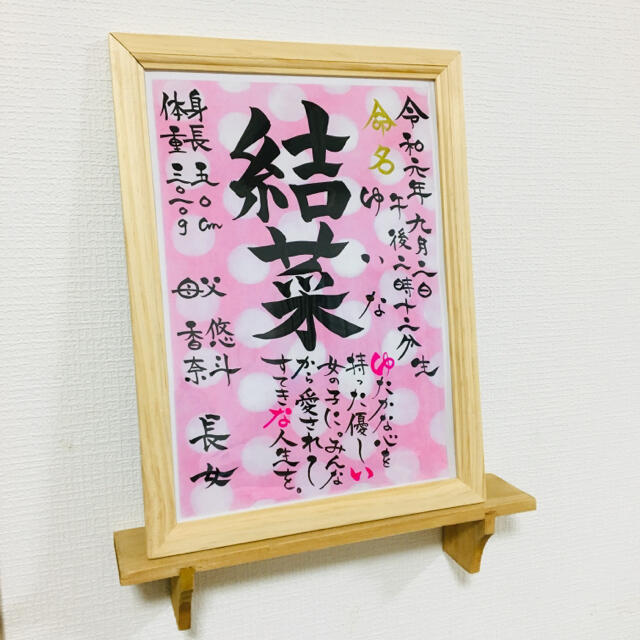 令和元年九月二日
午後二時十二分生
命名
ゆいな
結菜
ゆたかな心を
持った優しい
女の子に。みんな
から愛されて
すてきな人生を。
身長 五〇cm
体重 三〇二〇g
父 悠斗
母 香奈
長女